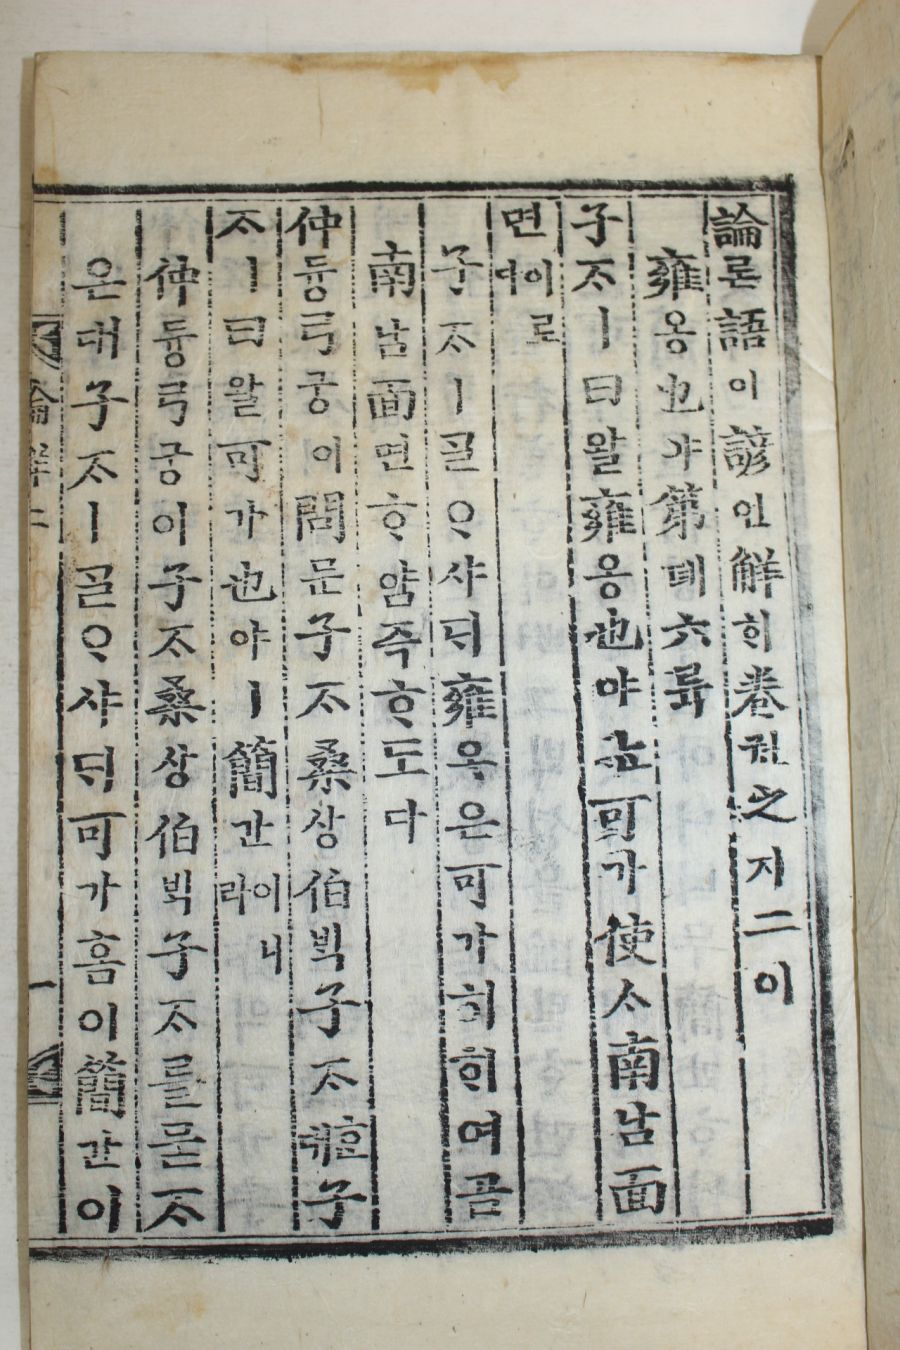 論론語어諺언解ᄒᆡ卷권之지二이
雍옹也야第뎨六륙
子ᄌᆞㅣ曰왈雍옹也야ᄂᆞᆫ可가使ᄉᆞ南남面
면이로다
子ᄌᆞㅣᄀᆞᆯᄋᆞ샤ᄃᆡ雍옹은可가히ᄒᆞ여곰
南남面면ᄒᆞ얌즉ᄒᆞ도다
仲듕弓궁이問문子ᄌᆞ桑상伯ᄇᆡᆨ子ᄌᆞᄒᆞᆫ대子
ᄌᆞㅣ曰왈可가也야ㅣ簡간이니라
仲듕弓궁이子ᄌᆞ桑상伯ᄇᆡᆨ子ᄌᆞ를묻ᄌᆞ
온대子ᄌᆞㅣᄀᆞᆯᄋᆞ샤ᄃᆡ可가홈이簡간이
論解二 一